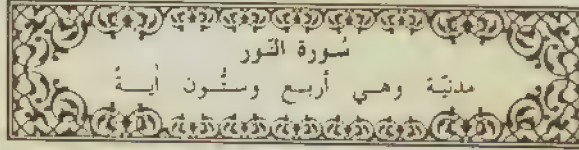 سُورة النّور
مدنيّة وهي أربع وستُّون أيـةً